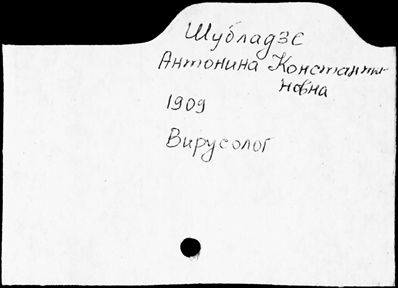 Шубладзе
Антонина Константи-
новна
1909
Вирусолог